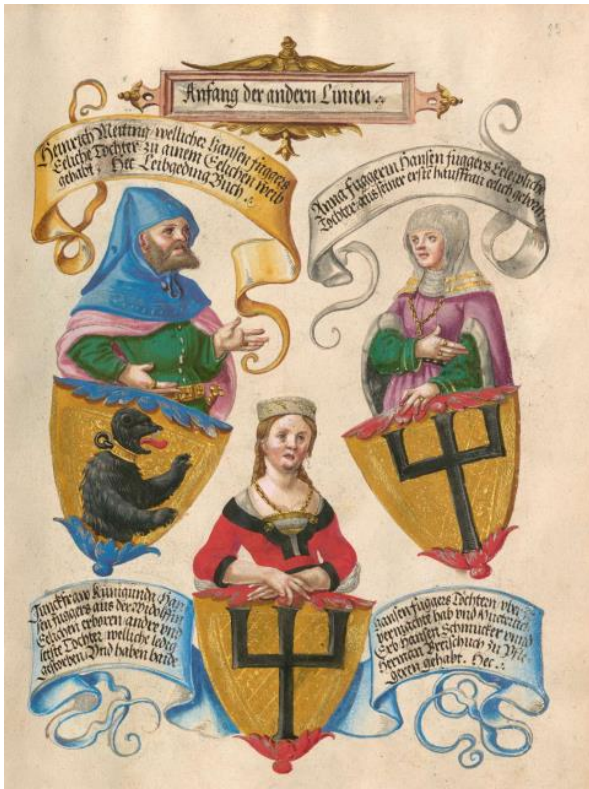 Anfang der andern Linien.
Heinrich Meiting wellicher Hansen fuggers
Eeliche Tochter zu ainem Eelichen weib
gehabt. Het Leibgeding Buch.
Anna fuggerin Hansen fuggers Eeleibliche
Tochter aus seiner erste hausfrau eelich geborn.
Junckfraw Künigunda Han
sen fuggers aus der Widolffin
Eelichen erboren andere und
letste Tochter welliche ledig
gestorben. Vnd haben baide
Hansen fuggers Töchtern
vermächt hab vnd
Erb Hansen Schmucker vnnd
Herman zu Pfle
gern gehabt. Hec.